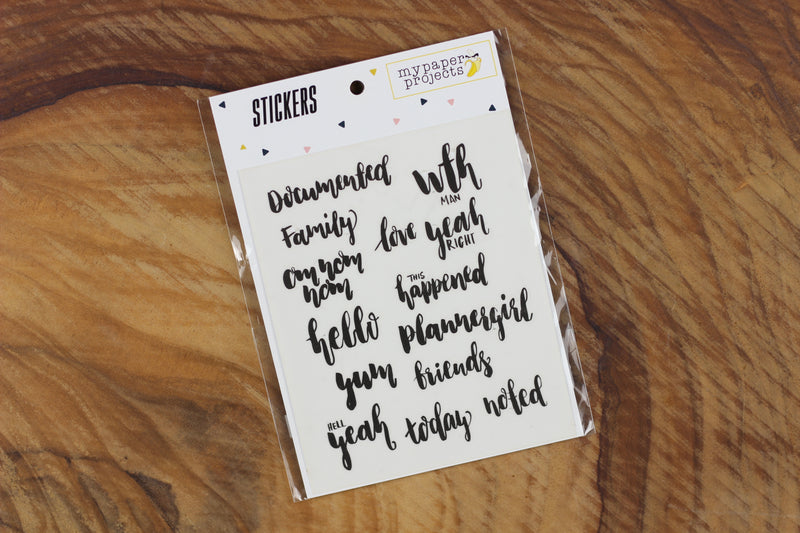 STICKERS
mypaper
projects
Documented
wth
MAN
Family
love
yeah
RIGHT
om nom
nom
THIS
happened
hello
plannergirl
yum
friends
HELL
yeah
today
noted